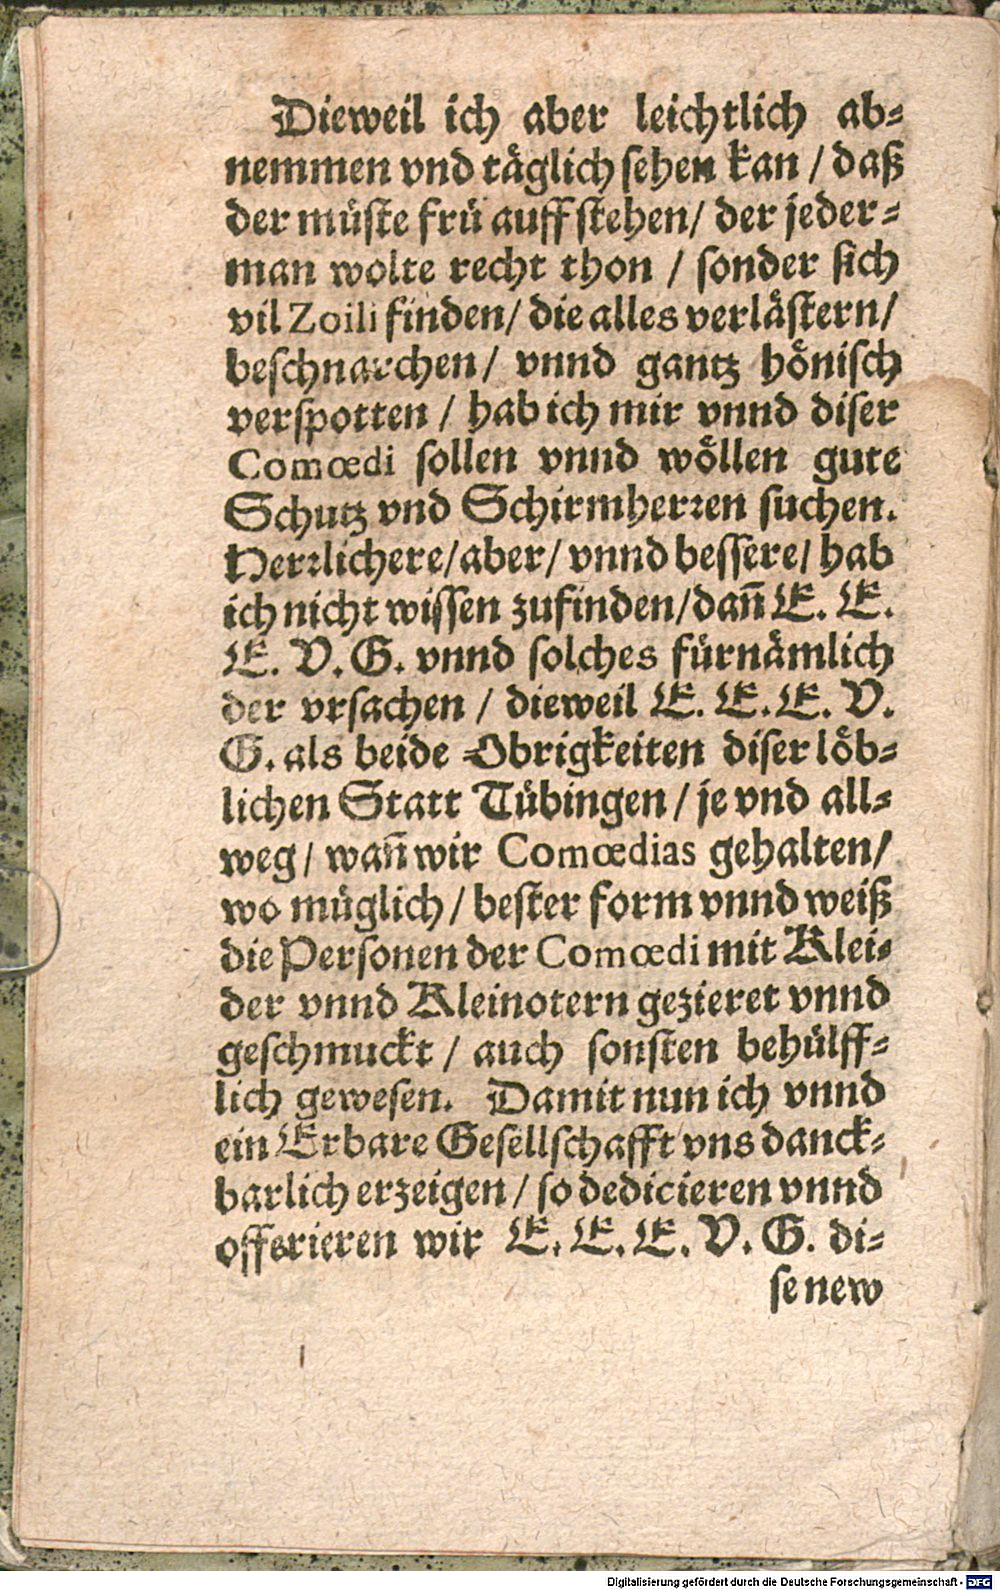 Dieweil ich aber leichtlich ab⸗
nemmen vnd täglich sehen kan / daß
der müste frü auffstehen / der jeder⸗
man wolte recht thon / sonder sich
vil Zoili finden / die alles verlästern /
beschnarchen / vnnd gantz hönisch
verspotten / hab ich mir vnnd diser
Comœdi sollen vnnd wöllen gute
Schutz vnd Schirmherꝛen suchen.
Herꝛlichere / aber / vnnd bessere / hab
ich nicht wissen zufinden / dañ E. E.
E. V. G. vnnd solches fürnämlich
der vrsachen / dieweil E. E. E. V.
G. als beide Obrigkeiten diser löb⸗
lichen Statt Tübingen / je vnd all⸗
weg / wañ wir Comœdias gehalten /
wo müglich / bester form vnnd weiß
die Personen der Comœdi mit Klei⸗
der vnnd Kleinotern gezieret vnnd
geschmuckt / auch sonsten behülff⸗
lich gewesen. Damit nun ich vnnd
ein Erbare Gesellschafft vns danck⸗
barlich erzeigen / so dedicieren vnnd
offerieren wir E. E. E. V. G. di⸗
se new
Digitalisierung gefördert durch die Deutsche Forschungsgemeinschaft - DFG